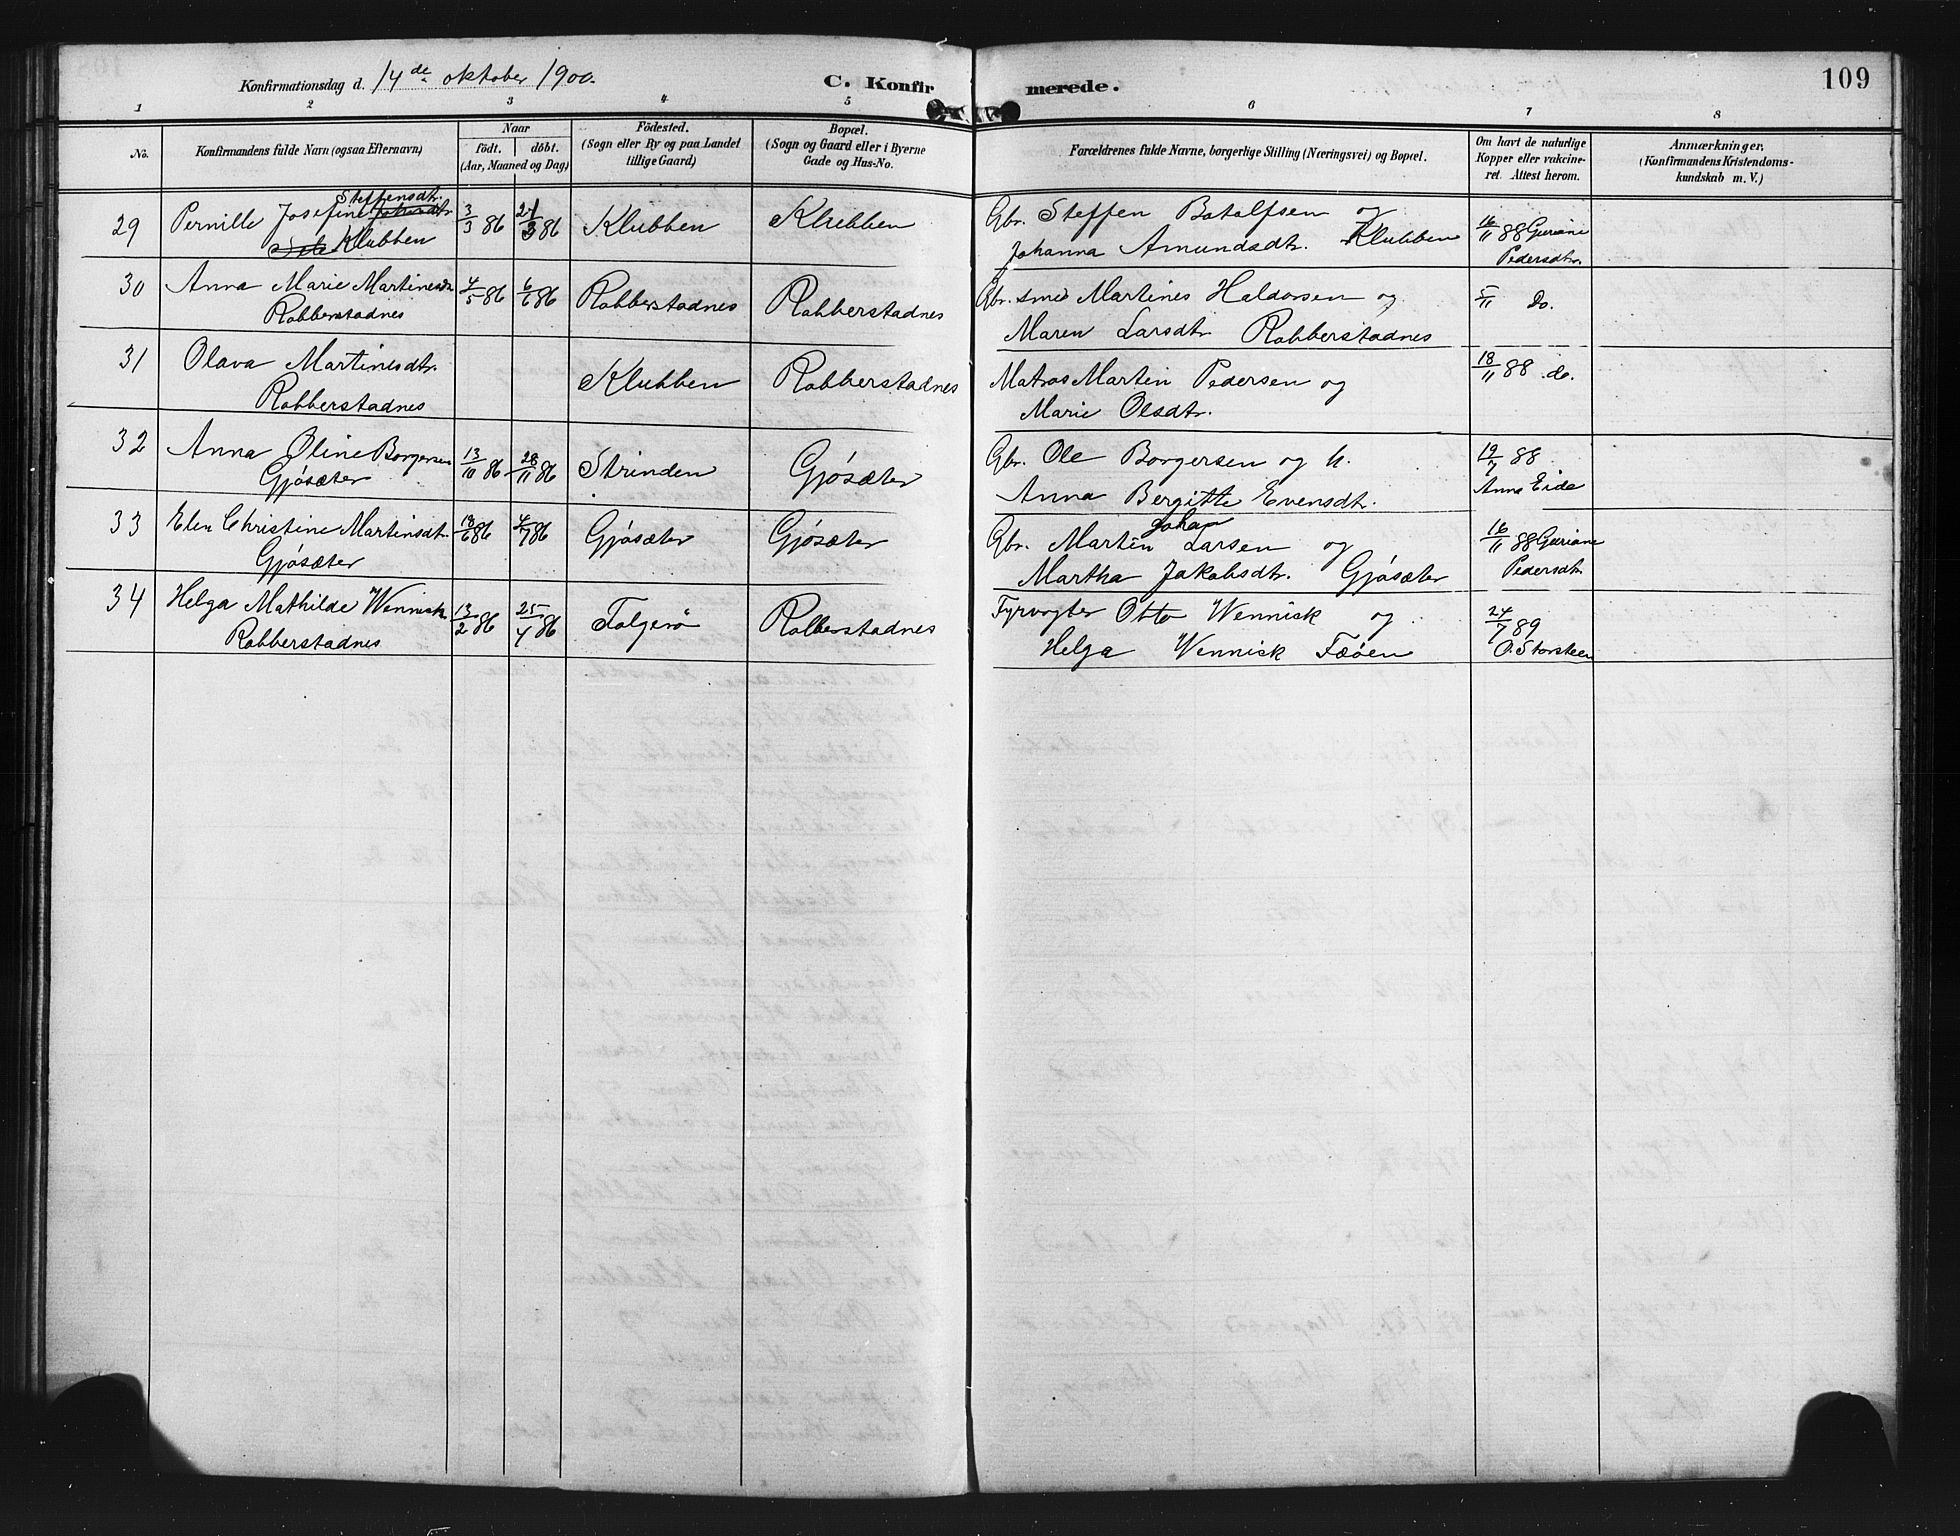 Konfirmationsdag d. 14de oktober 1900.
C. Konfirmerede.
109
1 2 3 4 5 6 7 8
No.
Konfirmandens fulde Navn (ogsaa Efternavn)
Naar
født. døbt.
(Aar, Maaned og Dag)
Födested.
(Sogn eller By og paa Landet
tillige Gaard)
Bopæl.
(Sogn og Gaard eller i Byerne
Gade og Hus-No.
Forældrenes fulde Navne, borgerlige Stilling (Næringsvei) og Bopæl.
Om havt de naturlige
Kopper eller vakcine-
ret. Attest herom.
Anmærkninger.
(Konfirmandens Kristendoms-
kundskab m. V.)
Steffensdtr.
29 Pernille Josefine 3/3 86 21/3 86 Klubben Klubben Gbr. Steffen Botolfsen og 16/11 88 Guriane
Klubben Johanna Amundsdtr. Klubben Pedersdtr.
30 Anna Marie Martinesdr 4/5 86 6/6 86 Robberstadnes Robberstadnes Gbr. smed Martines Haldorsen og 5/11 do.
Robberstadnes Maren Larsdtr Robberstadnes
31 Olava Martinesdtr. Klubben Robberstadnes Matros Martin Pedersen og 18/11 88 do.
Robberstadnes Marie Olsdtr.
32 Anna Oline Borgersen 13/10 86 28/11 86 Strinden Gjøsæter Gbr. Ole Borgersen og h. 19/7 88
Gjøsæter Anna Bergitte Evensdtr. Anna Eide
33 Elen Christine Martinsdtr. 18/6 86 4/7 86 Gjøsæter Gjøsæter Gbr. Martin Johan Larsen og 16/11 88 Guriane
Gjøsæter Martha Jakobsdtr. Gjøsæter Pedersdtr
34 Helga Mathilde Wennisk 13/2 86 25/4 86 Folgerø Robberstadnes Fyrvogter Otto Wennisk og 24/7 89
Robberstadnes Helga Wennisk Fæøen O. Storsteen